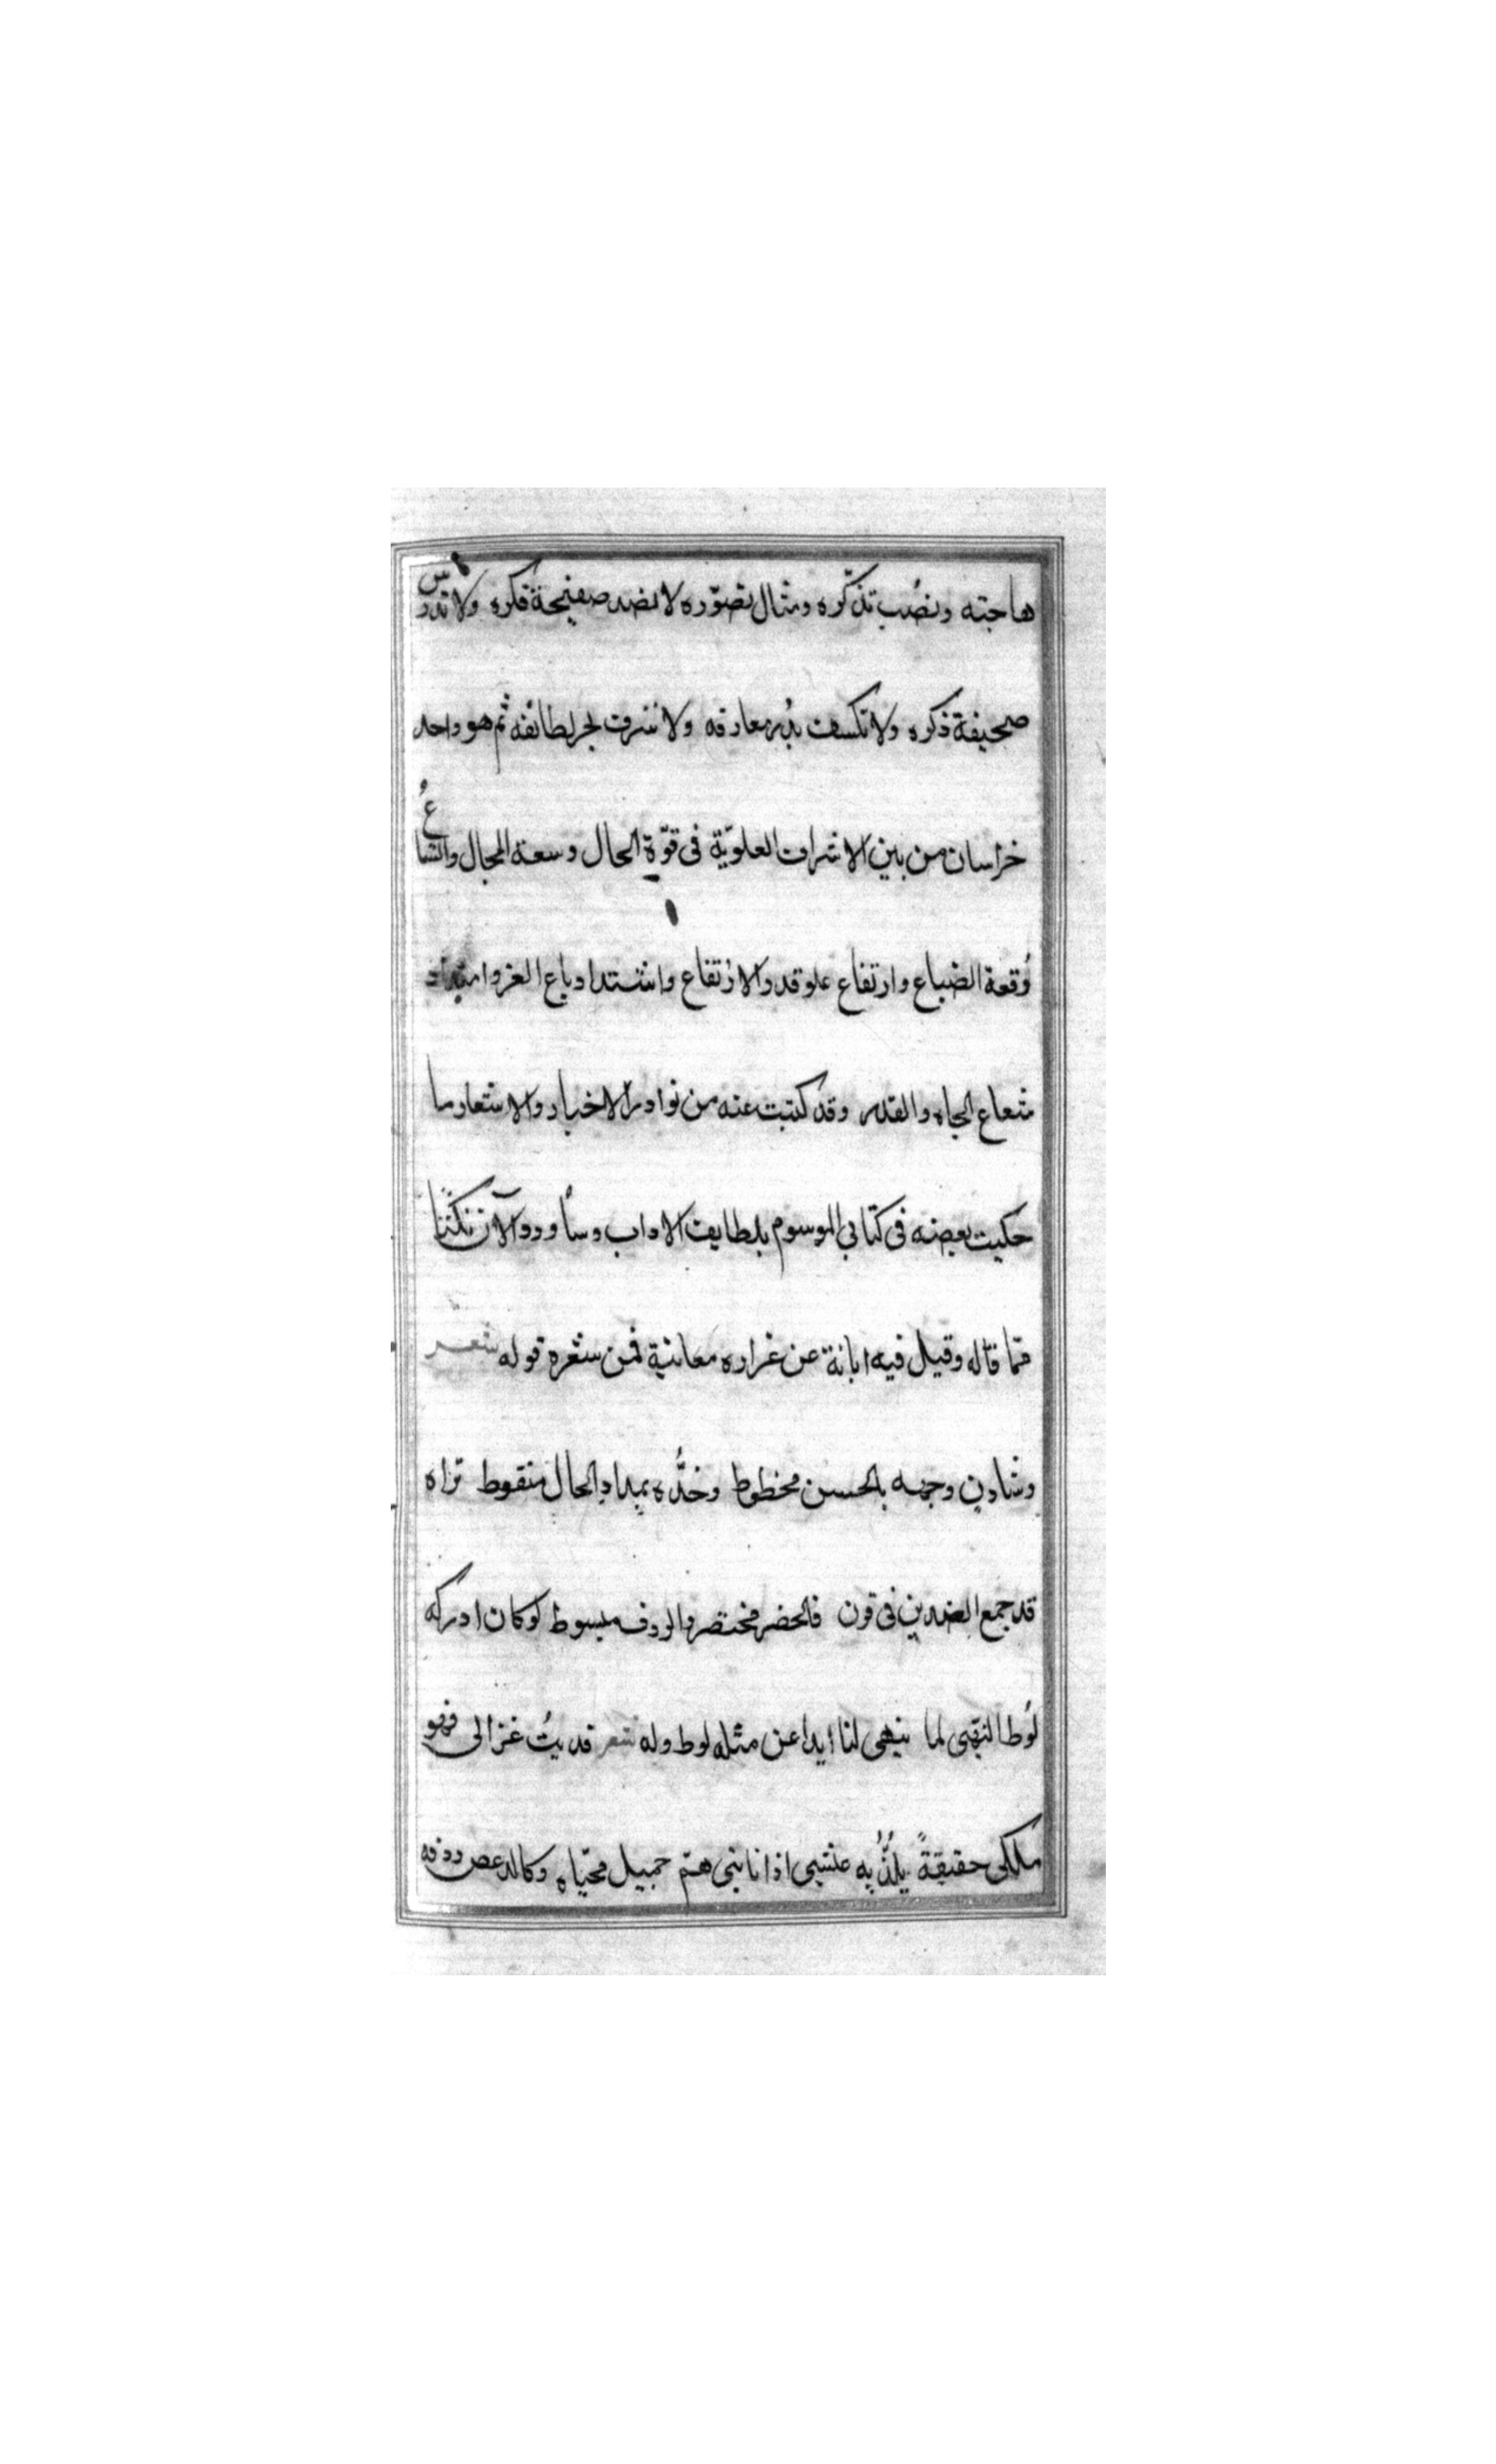 هاجته ونصُب تذكّره ومثال تصوّره لا تصد صفيحة فكره ولا تدرس
صحيفة ذكره ولا تكسف بدُر معارفه ولا ننزف بحر لطائفه ثم هو واحد
خراسان من بين الاشراف العلويّة فى قوّة الحال وسعة المجال واتساعُ
رُقعة الضياع وارتفاع علو قدر الارْتفاع واشتداد باع العز وامتداد
شعاع الجاه والقدر وقد كتبت عنه من نوادر الاخبار والاشعار ما
حكيت بعضه فى كتابي الموسوم بلطايف الاداب وسأورد الآن نكتًا
ممّا قاله وقيل فيه ابانة عن غزاره معانية فمن شعره قوله شعر
وشادنٍ وجهه بالحسن مخطوط وخدُّه بمِدادِ الخال منقوط تراه
قد جمع الضدين فى قرن فالخصر مختصر والردف مبسوط لو كان ادركه
لوُط النبّى لما ينهى لنا ابدا عن مثله لوط وله شعر فديتُ غزالى فهو
ملكى حقيقةً يلذُّ بِه عيشى اذا نابنى همّ جميل محيّاه وكالدعص ردفه